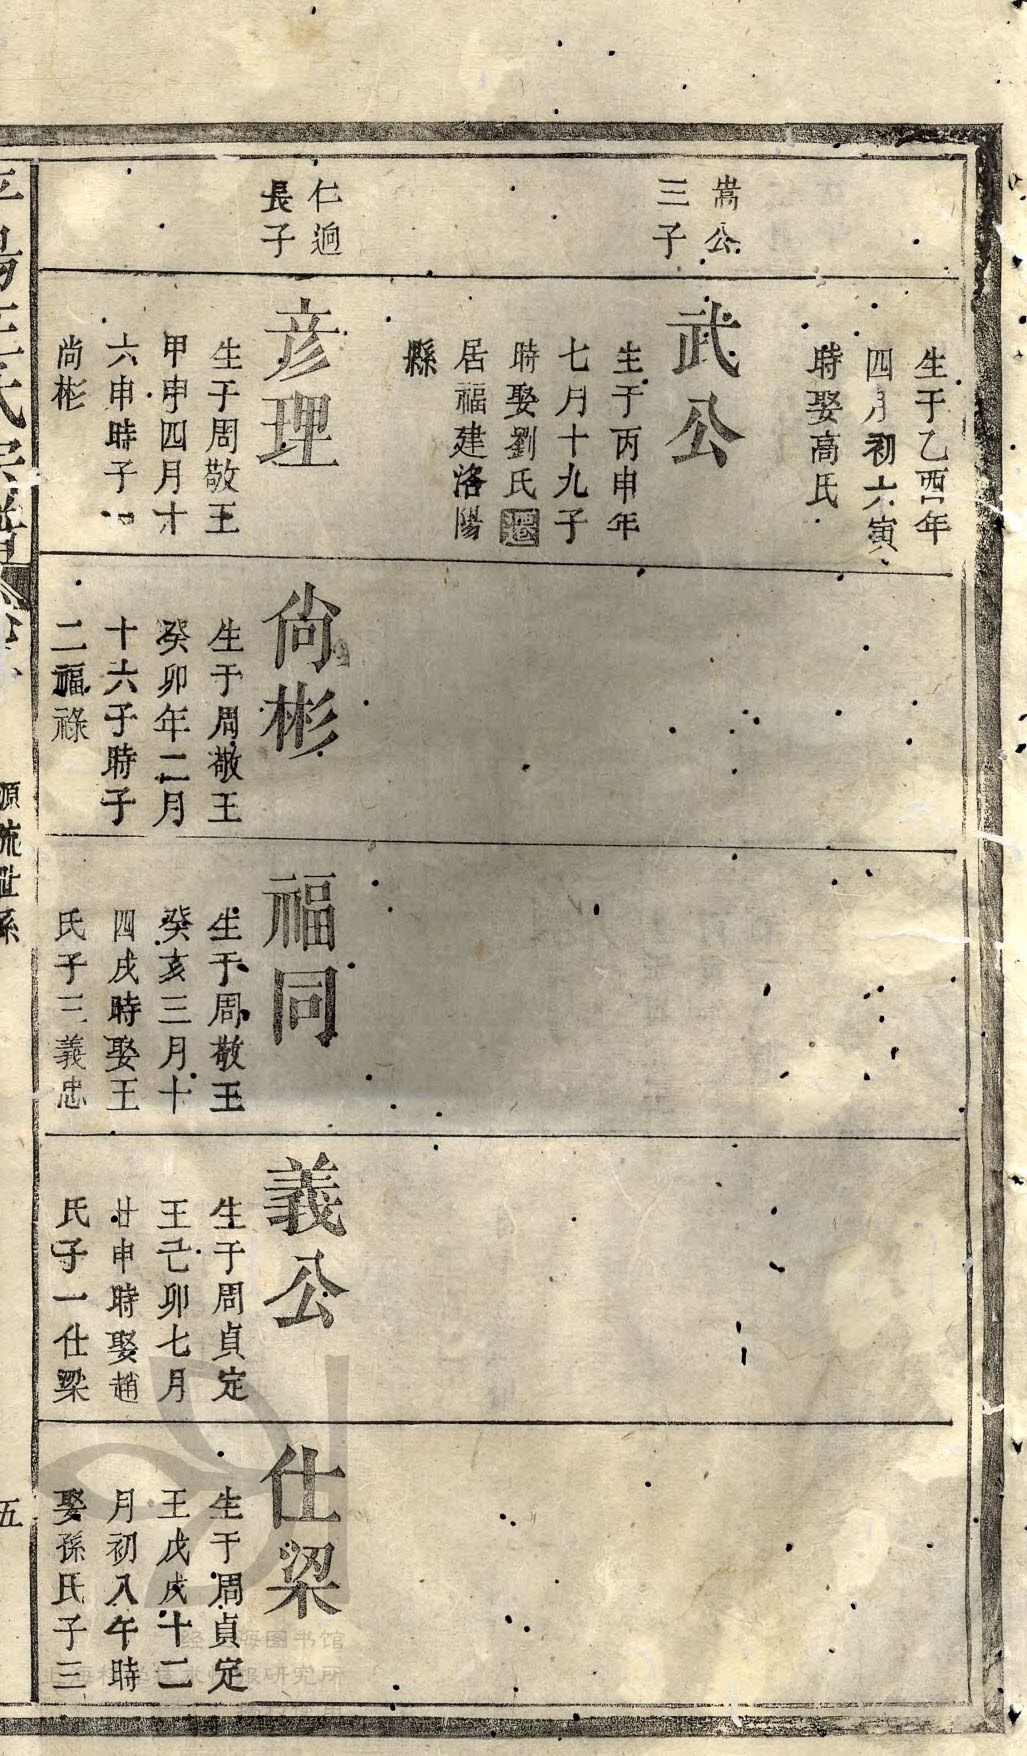 生于乙酉年
四月初六寅
時娶高氏
嵩公
三子
武公
生于丙申年
七月十九子
時娶劉氏遷
居福建洛陽
縣
仁逈
長子
彦理
生于周敬王
甲申四月十
六申時子一
尚彬
尙彬
生于周敬王
癸卯年二月
十六子時子
二福祿
福同
生于周敬王
癸亥三月十
四戌時娶王
氏子三義忠
義公
生于周貞定
王己卯七月
廿申時娶趙
氏子一仕梁
仕梁
生于周貞定
王戊戌十二
月初八午時
娶孫氏子三
源流世系
五